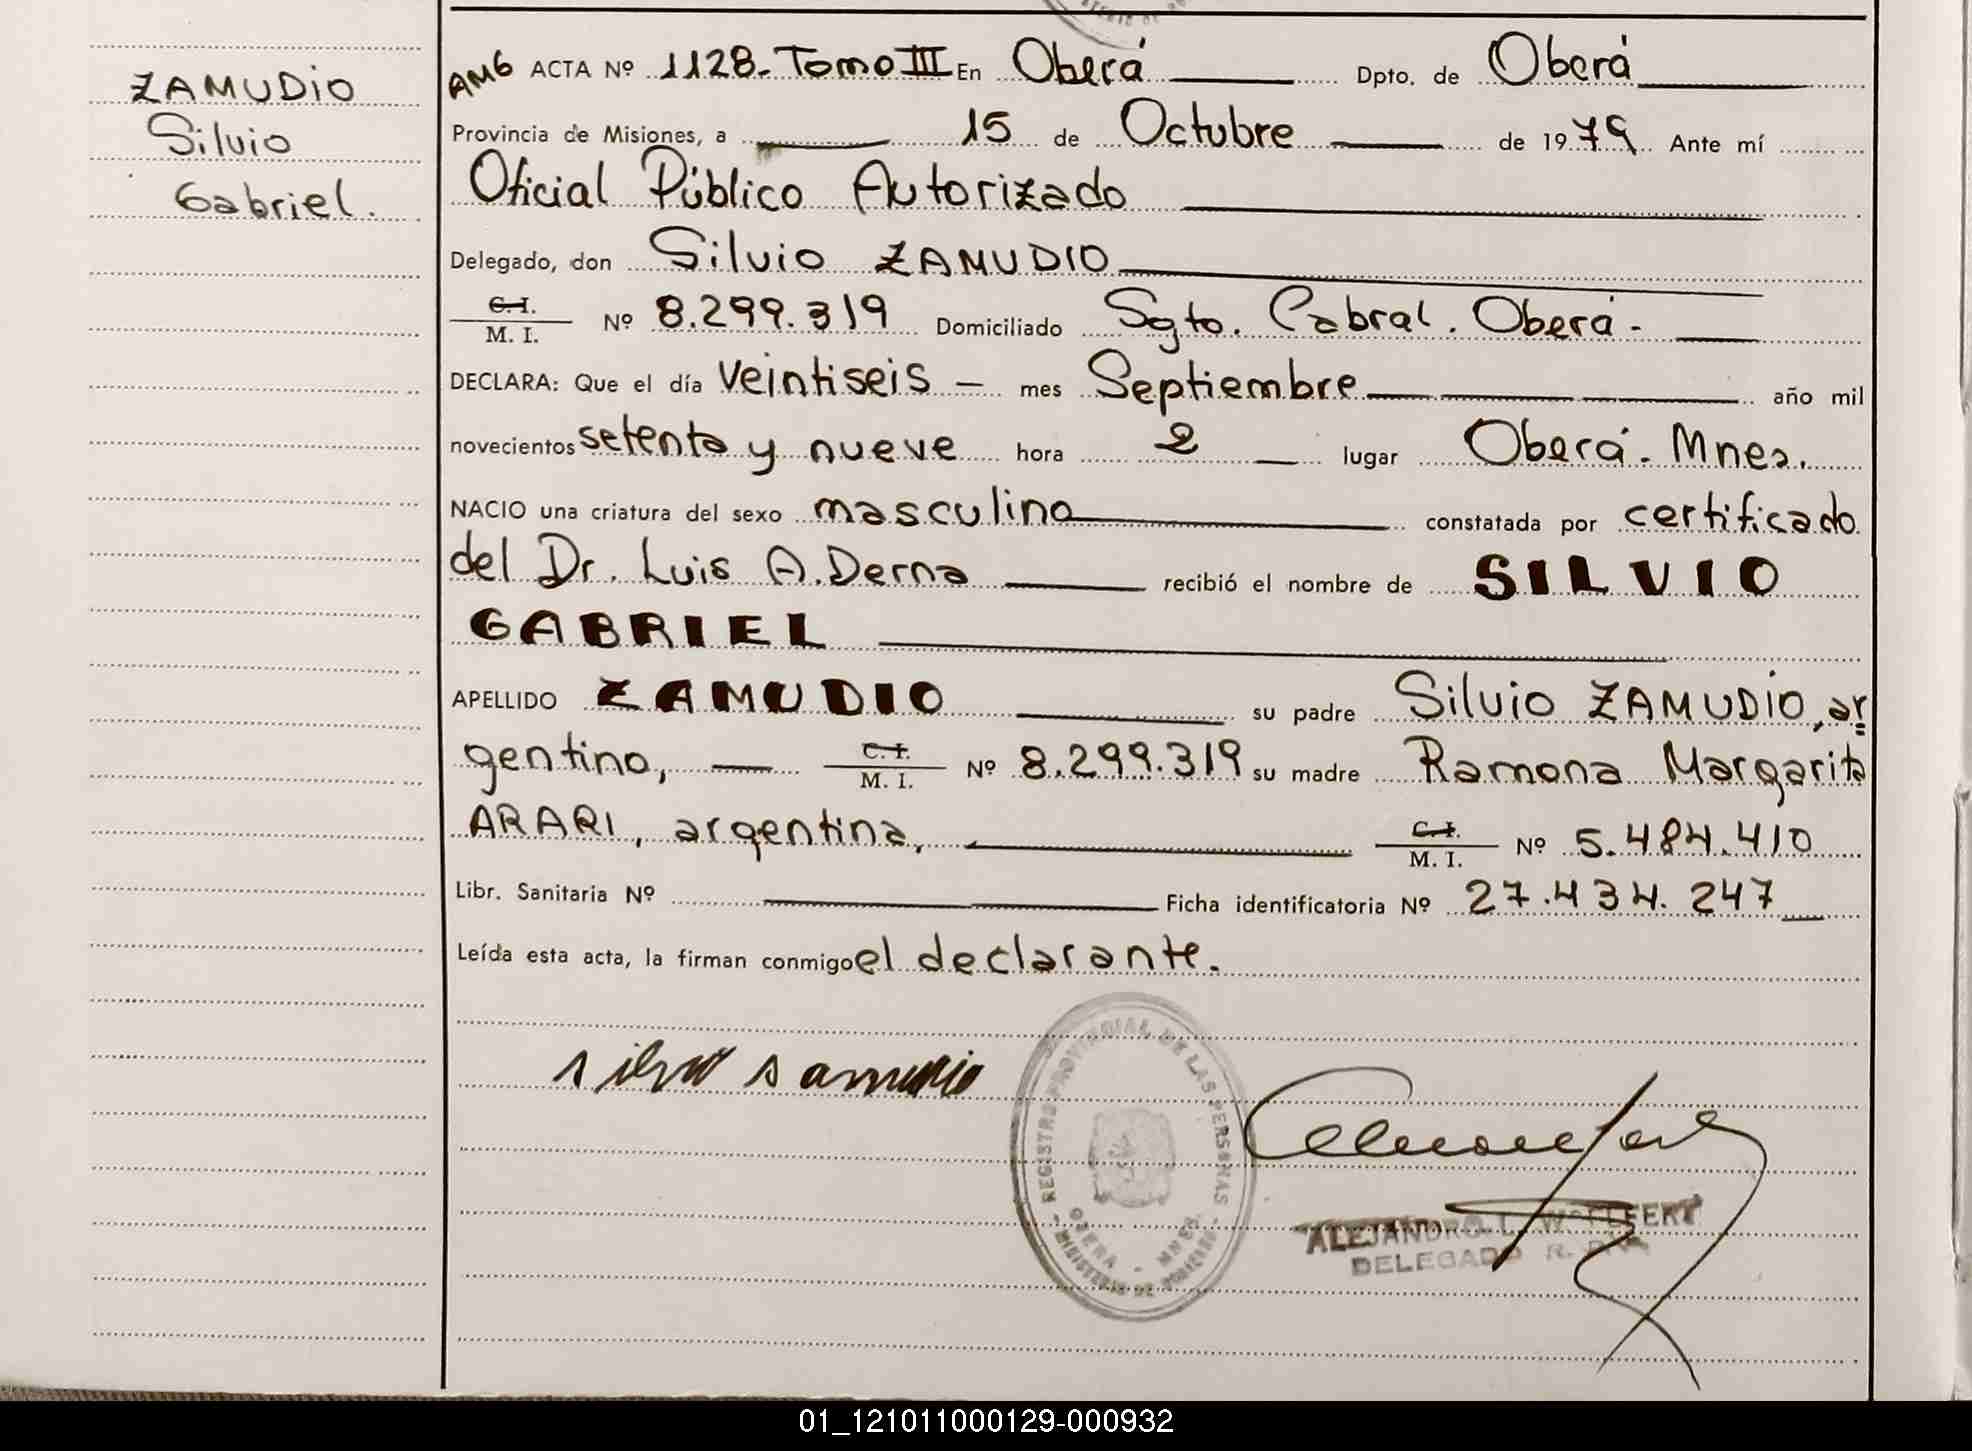 ZAMUDIO
Silvio
Gabriel.
AMG ACTA Nº 1128. Tomo III En Oberá Dpto. de Oberá
Provincia de Misiones, a 15 de Octubre de 1979 Ante mí
Oficial Público Autorizado
Delegado, don Silvio ZAMUDIO
C. I.
M. I. Nº 8.299.319 Domiciliado Sgto. Cabral. Oberá.
DECLARA: Que el día veintiseis - mes Septiembre año mil
novecientos setenta y nueve hora 2 lugar Oberá. Mnes.
NACIO una criatura del sexo masculino constatada por certificado
del Dr. Luis A. Derna recibió el nombre de SILVIO
GABRIEL
APELLIDO ZAMUDIO su padre Silvio ZAMUDIO, ar
gentino, C. I. M. I. Nº 8.299.319 su madre Ramona Margarita
ARARI, argentina, C. I. M. I. Nº 5.484.410
Libr. Sanitaria Nº Ficha identificatoria Nº 27.434.247
Leída esta acta, la firman conmigo el declarante.
REGISTRO PROVINCIAL DE LAS PERSONAS
OBERA - MNES.
MINISTERIO DE GOBIERNO
ALEJANDRO L.
DELEGADO R.
01_121011000129-000932